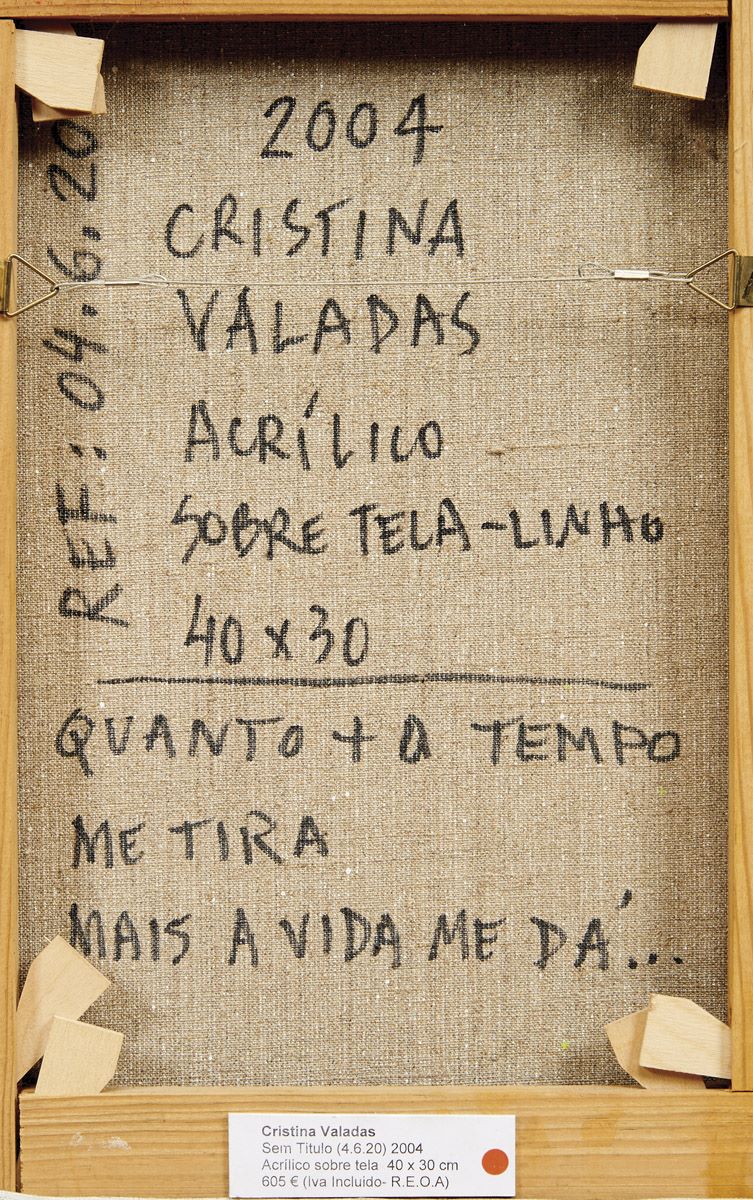 2004
CRISTINA
VALADAS
ACRÍLICO
SOBRE TELA-LINHO
40x30
REF: 04.6.20
QUANTO + O TEMPO
ME TIRA
MAIS A VIDA ME DÁ...
Cristina Valadas
Sem Titulo (4.6.20) 2004
Acrílico sobre tela 40 x 30 cm
605 € (Iva Incluido- R.E.O.A)